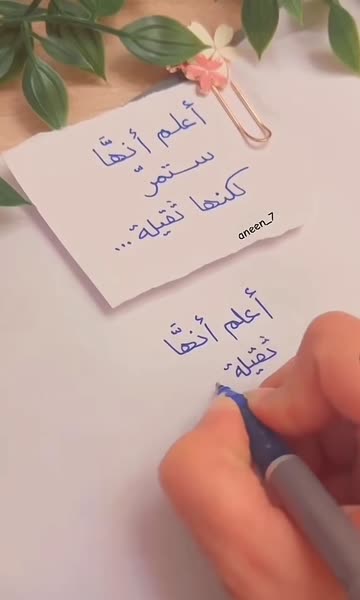 أعلم أنهَّا
ستمرّ
لكنها ثقيلة...
aneen_7
أعلم أنهَّا
ثقيلة